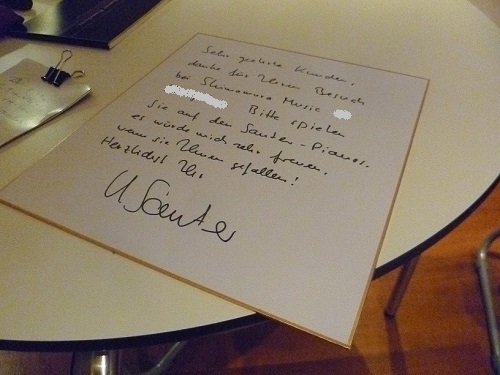 Sehr geehrte Kunden,
danke für Ihren Besuch
bei Shimamura Music
Bitte spielen
Sie auf den Sauter-Pianos.
es würde mich sehr freuen,
wenn sie Ihnen gefallen!
Herzlichst Ihr
USauter